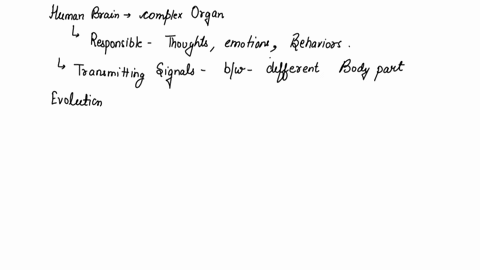 Human Brain → complex Organ
↳ Responsible - Thoughts, emotions, Behaviors.
↳ Transmitting Signals - b/w - different Body part
Evolution